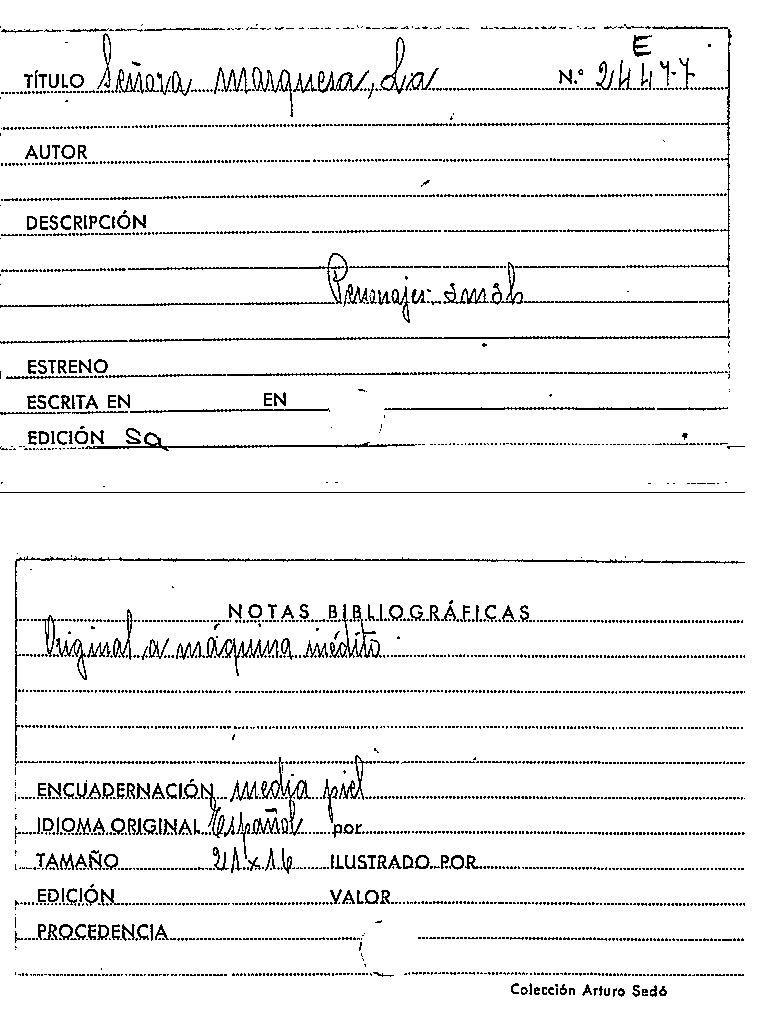 E
TÍTULO Señora marquesa, La N.º 24477
AUTOR
DESCRIPCIÓN
Personajes:
ESTRENO
ESCRITA EN EN
EDICIÓN Sa
NOTAS BIBLIOGRÁFICAS
Original a máquina inédito.
ENCUADERNACIÓN media piel
IDIOMA ORIGINAL Español por
TAMAÑO 21 x 16 ILUSTRADO POR
EDICIÓN VALOR
PROCEDENCIA
Colección Arturo Sedó